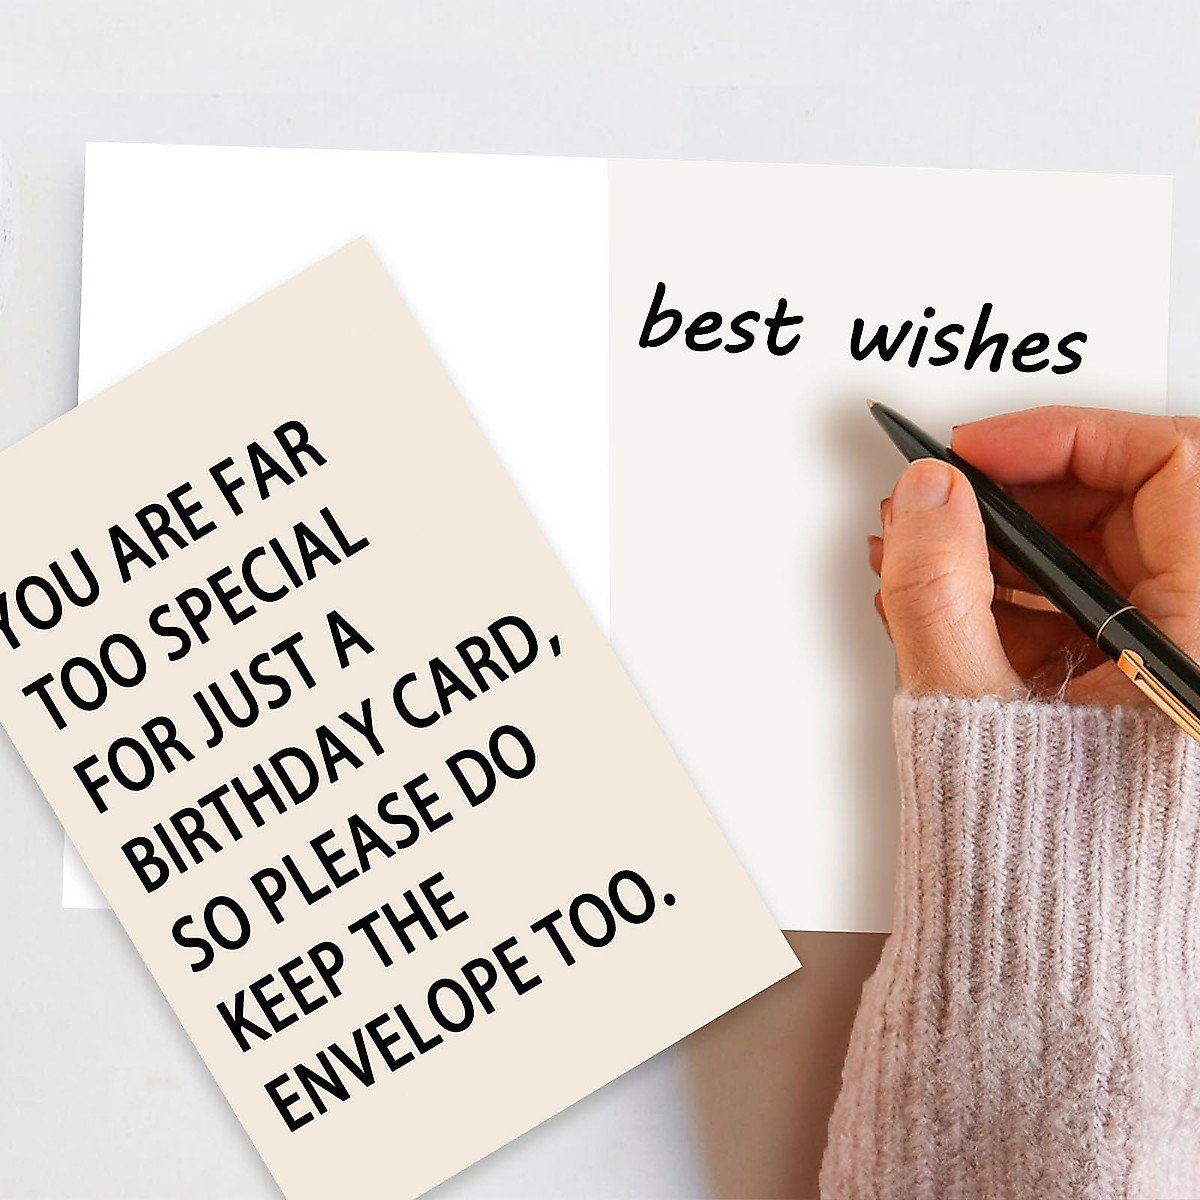 YOU ARE FAR
TOO SPECIAL
FOR JUST A
BIRTHDAY CARD,
SO PLEASE DO
KEEP THE
ENVELOPE TOO.
best wishes